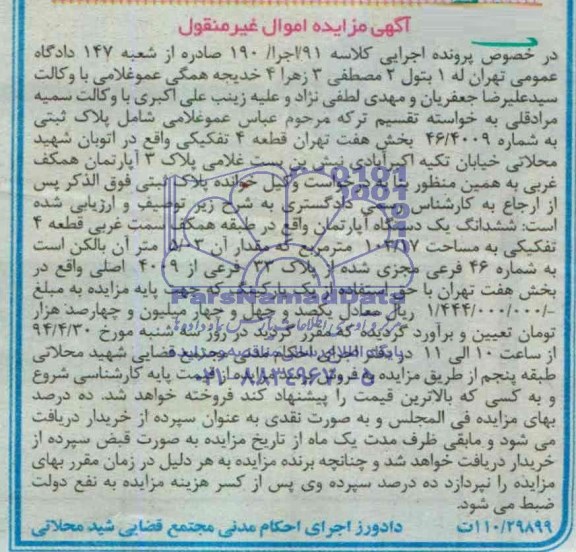 آگهی مزایده اموال غیرمنقول
در خصوص پرونده اجرایی کلاسه ۹۱/اجرا/ ۱۹۰ صادره از شعبه ۱۴۷ دادگاه
عمومی تهران له ۱ بتول ۲ مصطفی ۳ زهرا ۴ خدیجه همگی عموغلامی با وکالت
سیدعلیرضا جعفریان و مهدی لطفی نژاد و علیه زینب علی اکبری با وکالت سمیه
مرادقلی به خواسته تقسیم ترکه مرحوم عباس عموغلامی شامل پلاک ثبتی
به شماره ۴۶/۴۰۰۹ بخش هفت تهران قطعه ۴ تفکیکی واقع در اتوبان شهید
محلاتی خیابان تکیه اکبرآبادی نبش بن بست غلامی پلاک ۳ آپارتمان همکف
غربی به همین منظور بنا به درخواست وکیل خوانده پلاک ثبتی فوق الذکر پس
از ارجاع به کارشناس رسمی دادگستری به شرح زیر توصیف و ارزیابی شده
است: ششدانگ یک دستگاه آپارتمان واقع در طبقه همکف سمت غربی قطعه ۴
تفکیکی به مساحت ۱۰۳/۱۷ مترمربع که مقدار آن ۵/۰۳ متر آن بالکن است
به شماره ۴۶ فرعی مجزی شده از پلاک ۳۳ فرعی از ۴۰۰۹ اصلی واقع در
بخش هفت تهران با حق استفاده از یک پارکینگ که جهت پایه مزایده به مبلغ
۱/۴۴۴/۰۰۰/۰۰۰/- ریال معادل یکصد و چهل و چهار میلیون و چهارصد هزار
تومان تعیین و برآورد گردیده که مقرر گردید در روز سه شنبه مورخ ۹۴/۴/۳۰
از ساعت ۱۰ الی ۱۱ در دفتر اجرای احکام مدنی مجتمع قضایی شهید محلاتی
طبقه پنجم از طریق مزایده به فروش برسد مزایده از قیمت پایه کارشناسی شروع
و به کسی که بالاترین قیمت را پیشنهاد کند فروخته خواهد شد. ده درصد
بهای مزایده فی المجلس و به صورت نقدی به عنوان سپرده از خریدار دریافت
می شود و مابقی ظرف مدت یک ماه از تاریخ مزایده به صورت قبض سپرده از
خریدار دریافت خواهد شد و چنانچه برنده مزایده به هر دلیل در زمان مقرر بهای
مزایده را نپردازد ده درصد سپرده وی پس از کسر هزینه مزایده به نفع دولت
ضبط می شود.
۱۱۰/۲۹۸۹۹ت دادورز اجرای احکام مدنی مجتمع قضایی شید محلاتی
ParsNamadData
۰۲۱-۸۸۳۴۹۶۷۰-۵